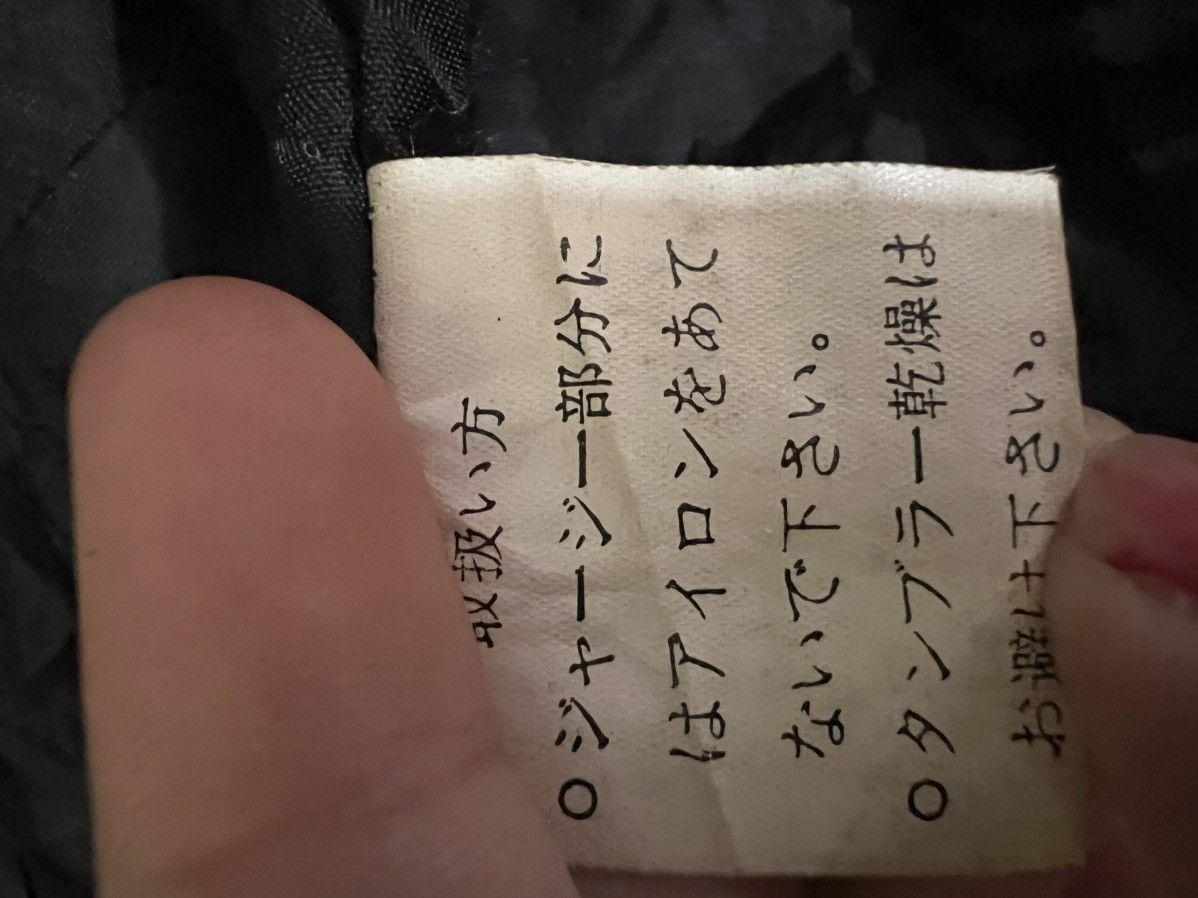 取扱い方
○ジャージー部分に
はアイロンをあて
ないで下さい。
○タンブラー乾燥は
お避け下さい。